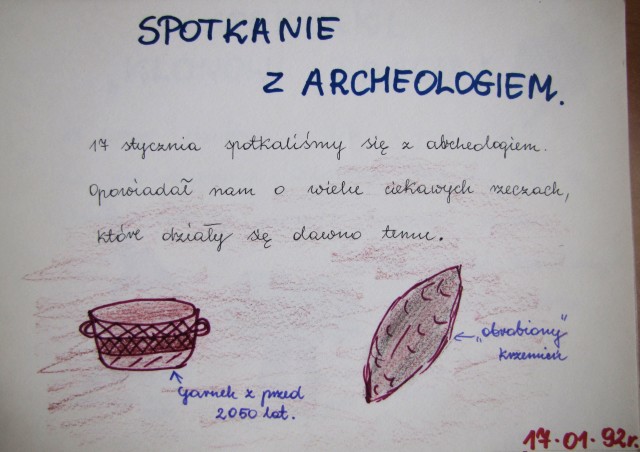 SPOTKANIE
Z ARCHEOLOGIEM.
17 stycznia spotkaliśmy się z archeologiem.
Opowiadał nam o wielu ciekawych rzeczach,
które działy się dawno temu.
"obrobiony"
krzemień
Garnek z przed
2050 lat.
17.01.92r.